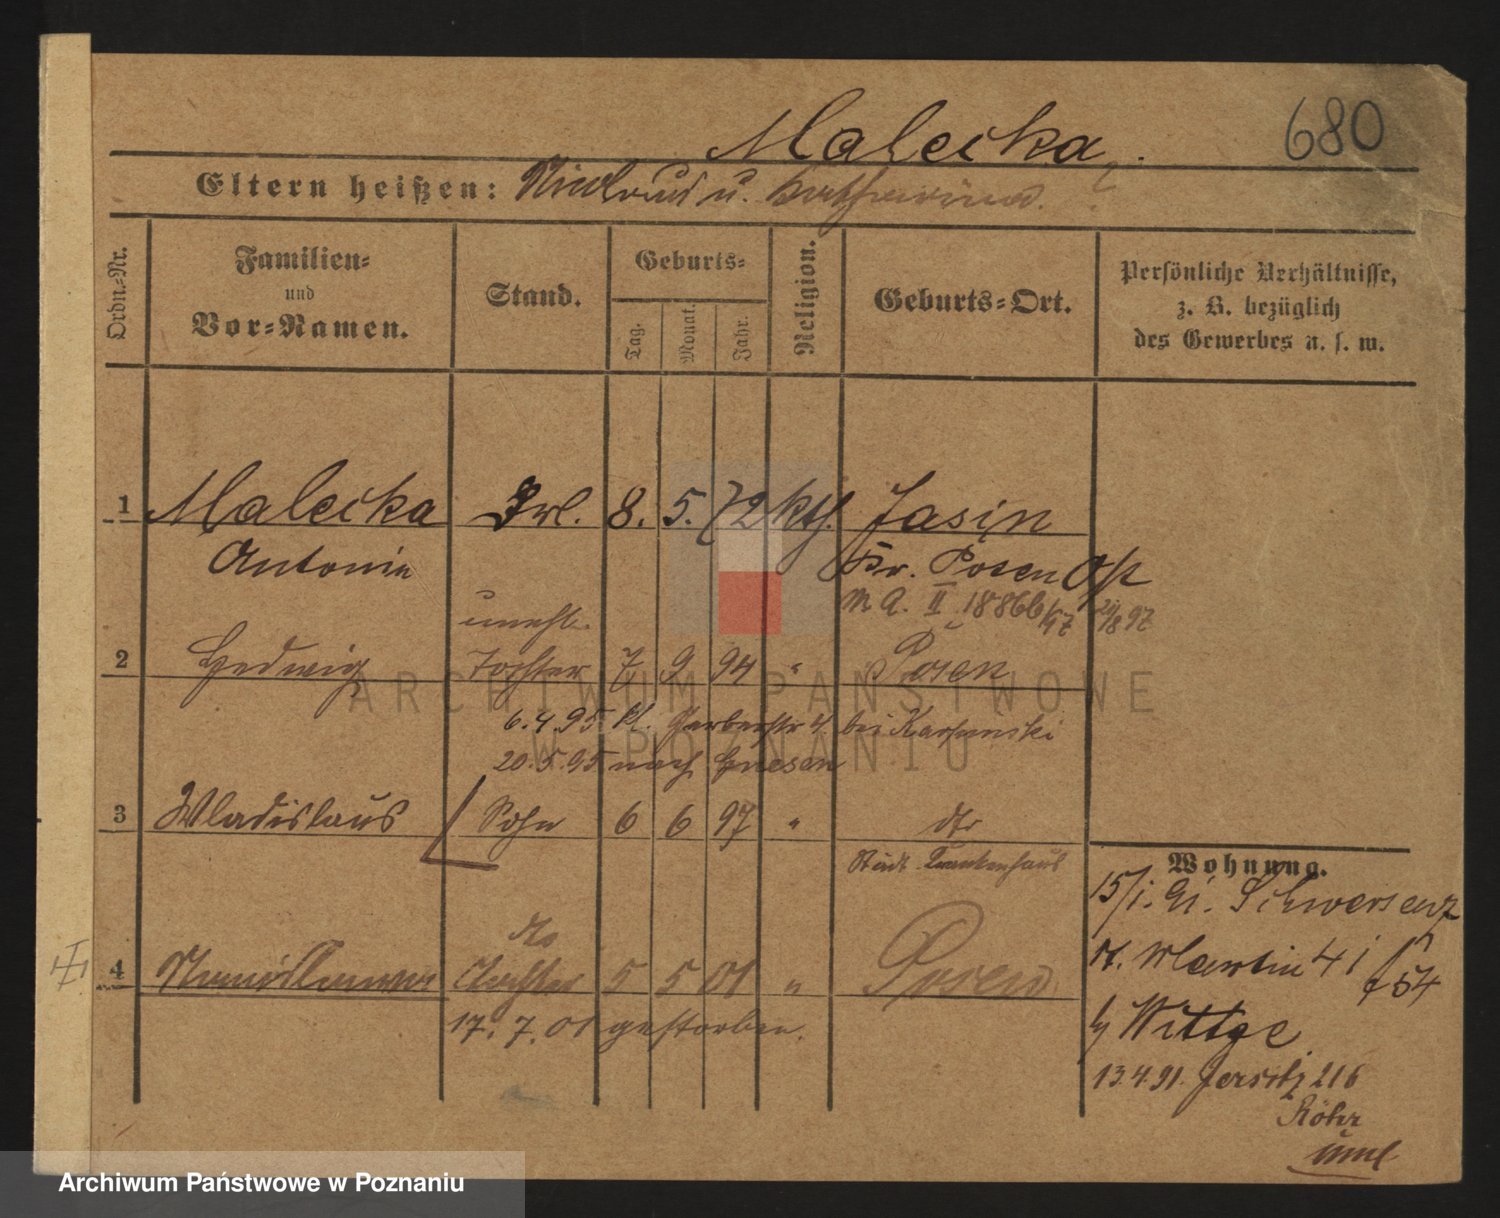 680
Malecka
Eltern heißen: u. Katharina.
Ordn.-Nr.
Familien-
und
Vor-Namen.
Stand.
Geburts-
Tag.
Monat.
Jahr.
Religion.
Geburts-Ort.
Persönliche Verhältnisse,
z. B. bezüglich
des Gewerbes u. s. w.
1 Malecka Frl. 8. 5. 72 kth. Jasin
Antonie Kr. Posen Ost
II 1886
unehl.
2 Hedwig Tochter 7 9 94 " Posen
6.4.95 Kl. Gerberstr 4. bei
20.5.95 nach Gnesen
3 Wladislaus Sohn 6 6 97 " dto
Städt. Krankenhaus
Wohnung.
15/1. 91. Schwersenz
dto
4 Tochter 5 5 01 " Posen
St. Martin 41
54
17. 7. 01 gestorben.
b/ Wittge
13.4.91. Jersitz 216
Röhr
ARCHIWUM PAŃSTWOWE
W POZNANIU
Archiwum Państwowe w Poznaniu